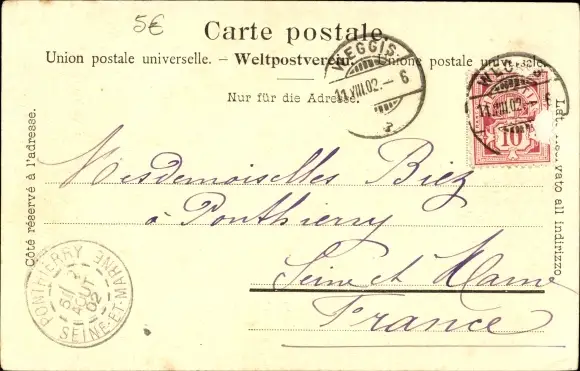 5€
Carte postale.
Union postale universelle. – Weltpostverein. – Unione postale universale.
Nur für die Adresse.
WEGGIS
11.VIII.02.–6
WEGGIS
11.VIII.02.–6
10
Côté réservé à l'adresse.
Lato riservato all indirizzo
Mesdemoiselles Biez
à Ponthierry
Seine et Marne
France
PONTHIERRY
AOUT
02
SEINE-ET-MARNE